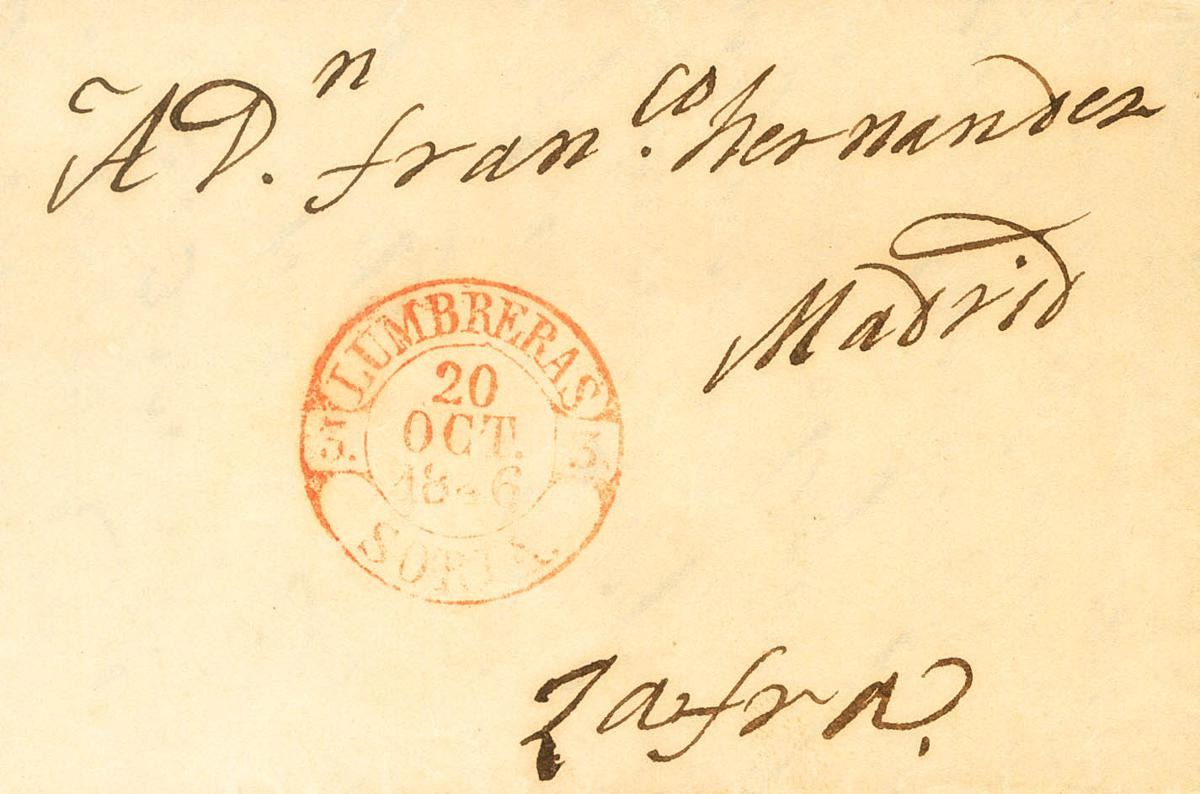 A D.n fran.co hernandez
Madrid
LUMBRERAS
20
OCT.
SORIA
Zafra.